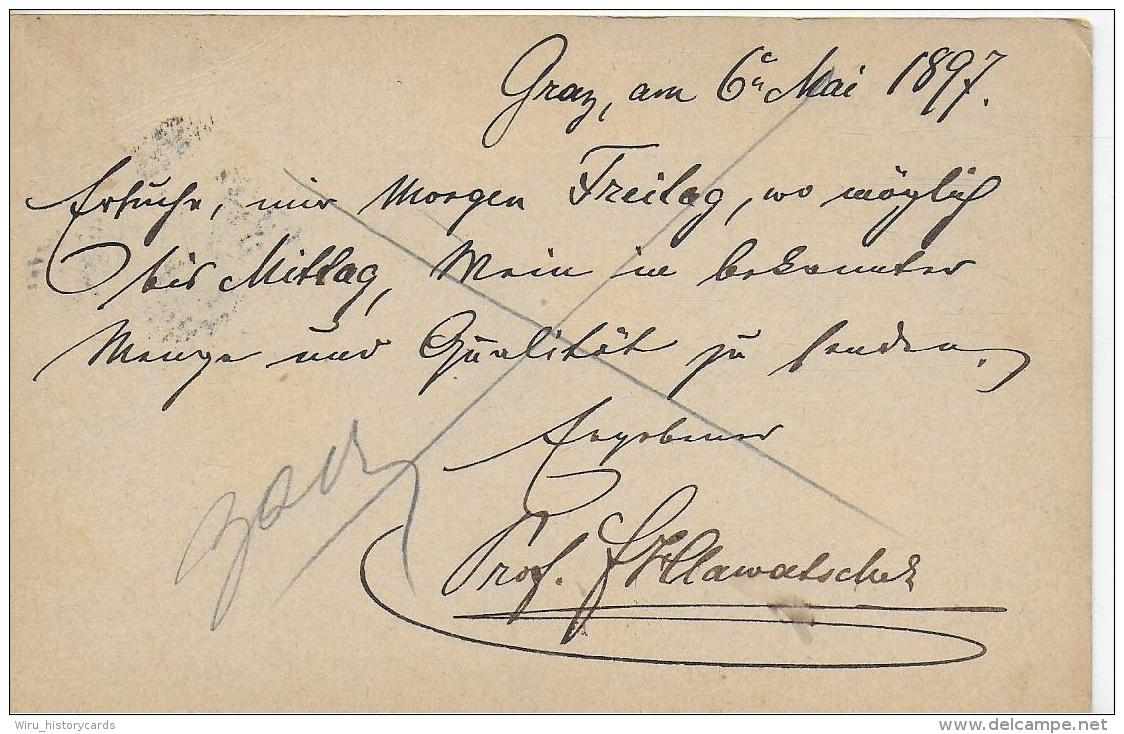 Graz, am 6en Mai 1897.
Ersuche, mir Morgen Freitag, wo möglich
bis Mittag, Wein in bekannter
Menge und Qualität zu senden.
Ergebenst
Prof. F Hlawatschek
Wiru_historycards
delcampe.net